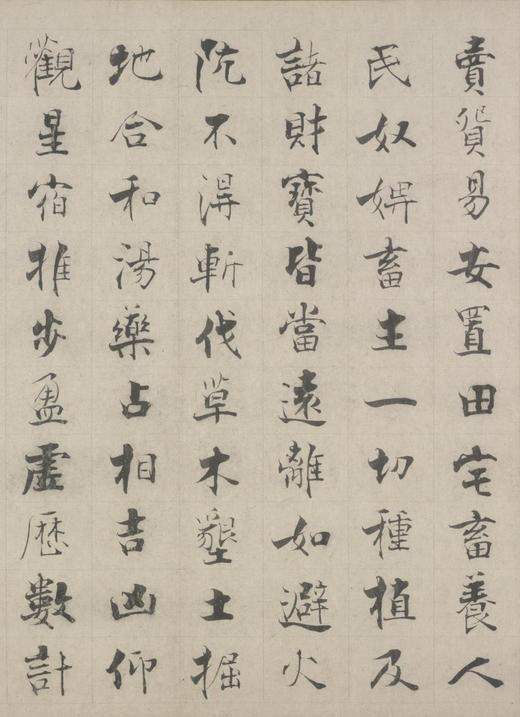 賣貿易安置田宅畜養人
民奴婢畜生一切種植及
諸財寶皆當遠離如避火
阬不得斬伐草木墾土掘
地合和湯藥占相吉凶仰
觀星宿推步盈虛曆數計